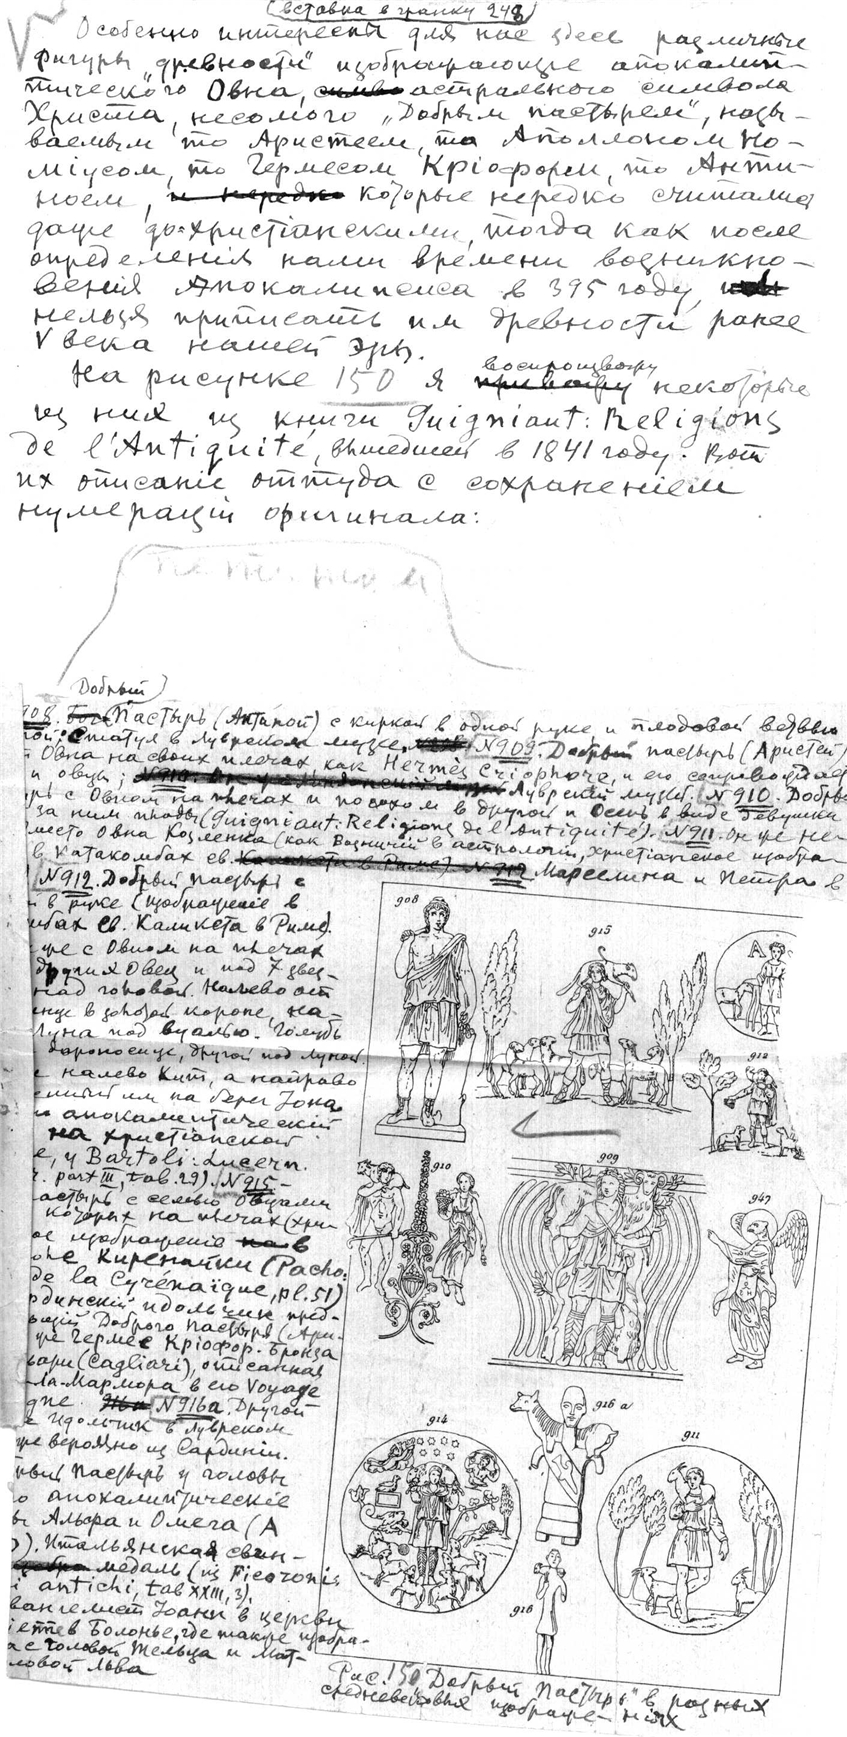 (вставка в гранку 248)
Особенно интересны для нас здесь различные
фигуры „древности“ изображающие апокалип-
тического Овна, астрального символа
Христа, несомого „Добрым пастырем“, назы-
ваемым то Аристеем, то Аполлоном Но-
міусом, то Гермесом Кріофором, то Анти-
ноем, которые нередко считались
даже до-христіанскими, тогда как после
определенія нами времени возникно-
венія Апокалипсиса в 395 году,
нельзя приписать им древности ранее
V века нашей эры.
На рисунке 150 я воспроизвожу некоторые
из них из книги Guigniaut: Religions
de l'Antiquité, вышедшей в 1841 году. Вот
их описаніе оттуда с сохраненіем
нумераціи оригинала:
петитом
Добрый
908. Пастырь (Антиной) с киркой в одной руке и плодовой ветвью
Статуя в Луврском музее. N 909. Добрый пастырь (Аристей)
Овна на своих плечах как Hermès Criophore, и его сопровождает
и овцы; Луврскій музей. N 910. Добры
с Овном на плечах и посохом в другой и Осень в виде девушки
за ним плоды (Guigniaut: Religions de l'Antiquité). N 911. Он же не-
место Овна Козленка (как Возничій в астрологіи, христіанское изобра-
в катакомбах св. Марселина и Петра в
N 912. Добрый пастырь с
в руке (изображеніе в
мбах св. Каликста в Риме).
же с Овном на плечах
других Овец и под 7 звез-
над головой. Налево от
в золотой короне, на-
Луна под вуалью. Голубь
другой под Луной
налево Кит, а направо
им на берег Іона
апокалиптическій
на христіанской
е, у Bartoli: Lucern.
part III, tab. 29). N 915.-
астырь с семью Овцами
которых на плечах (хри-
ое изображеніе в
Киренаики (Pacho:
de la Cyrénaïque, pl. 51)
рдинскій идольчик пред-
Доброго Пастыря (Ари-
же Гермес Кріофор. Бронза
ьяри (Cagliari), описанная
ла-Мармора в его Voyage
N 916a. Другой
е идольчик в Луврском
же вероятно из Сардиніи.
Пастырь у головы
о апокалиптическіе
Альфа и Омега (А
Итальянская свин-
медаль (из Ficoronis
i antichi, tab XXIII, 3).
вангелист Іоанн в церкви
в Болонье, где также изобра-
а с головой Тельца и Мат-
ловой Льва
908
915
A
912
910
909
947
914
916 a
911
916
Рис. 150 „Добрый Пастырь“ в разных
средневековых изображеніях